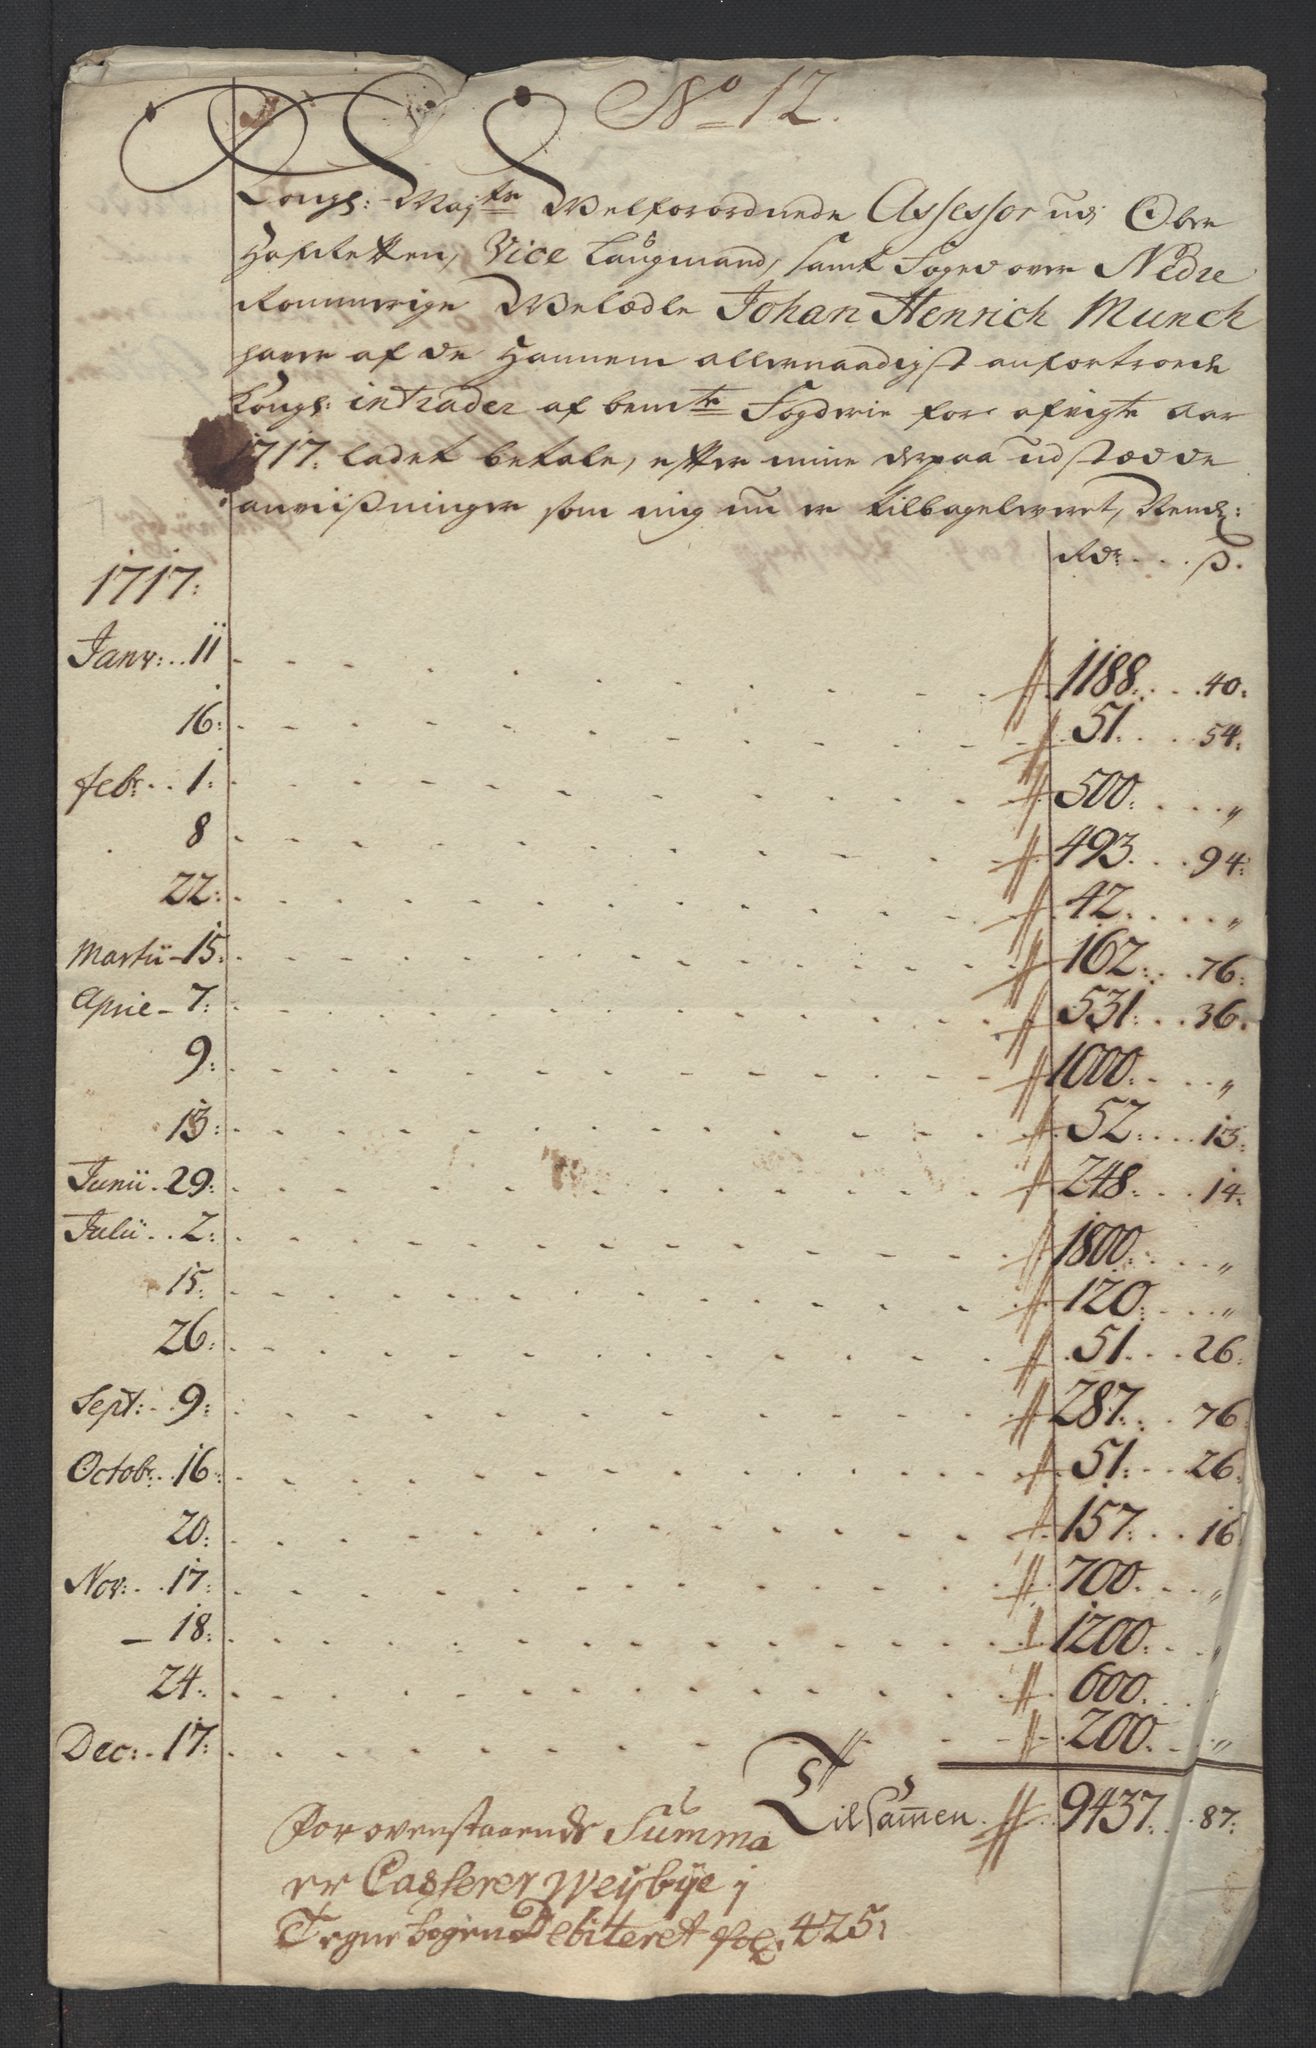 No 12.
Kongl: Majtr Welforordnede Assessor udi Ober
Hofretten, Vice Laugmand, samt Foged over Nedre
Rommerige Welædle Johan Henrich Munch
haver af de Hannem allernaadigst anfortroede
Kongl: intrader af bemte Fogderie for afvigte aar
1717: ladet betale, efter mine derpaa udstædde
anvisninger som mig nu er tilbageleveret, Nembl:
Rdr. . . . ß.
1717:
Janv: . . 11 . . . 1188: . . . 40:
16: . . . 51: . . . 54:
febr: . . 1: . . . 500: . . . „
8 . . . 493. . . 94:
22: . . . 42: . . . „
Martii - 15: . . . 162: . . 76:
Aprie - 7: . . . 531: . . 36.
9: . . . 1000: . . . „
13: . . . 52: . . . 13:
Junii . 29: . . . 248: . . 14:
Julii . . 2: . . . 1800: . . . „
15: . . . 120: . . . „
26: . . . 51: . . 26:
Sept: . . 9: . . . 287: . . 76
Octobr: . 16: . . . 51: . . 26:
20: . . . 157: . . 16
Nov: . . 17: . . . 700: . . . „
— 18: . . . 1200: . . „
24: . . . 600: . . .
Dec: . 17: . . . 200: . . „
Tilsamen. 9437: . 87:
for ovenstaaende Summa
er Casserer Weybye i
Tegnebogen Debiteret fol: 425: